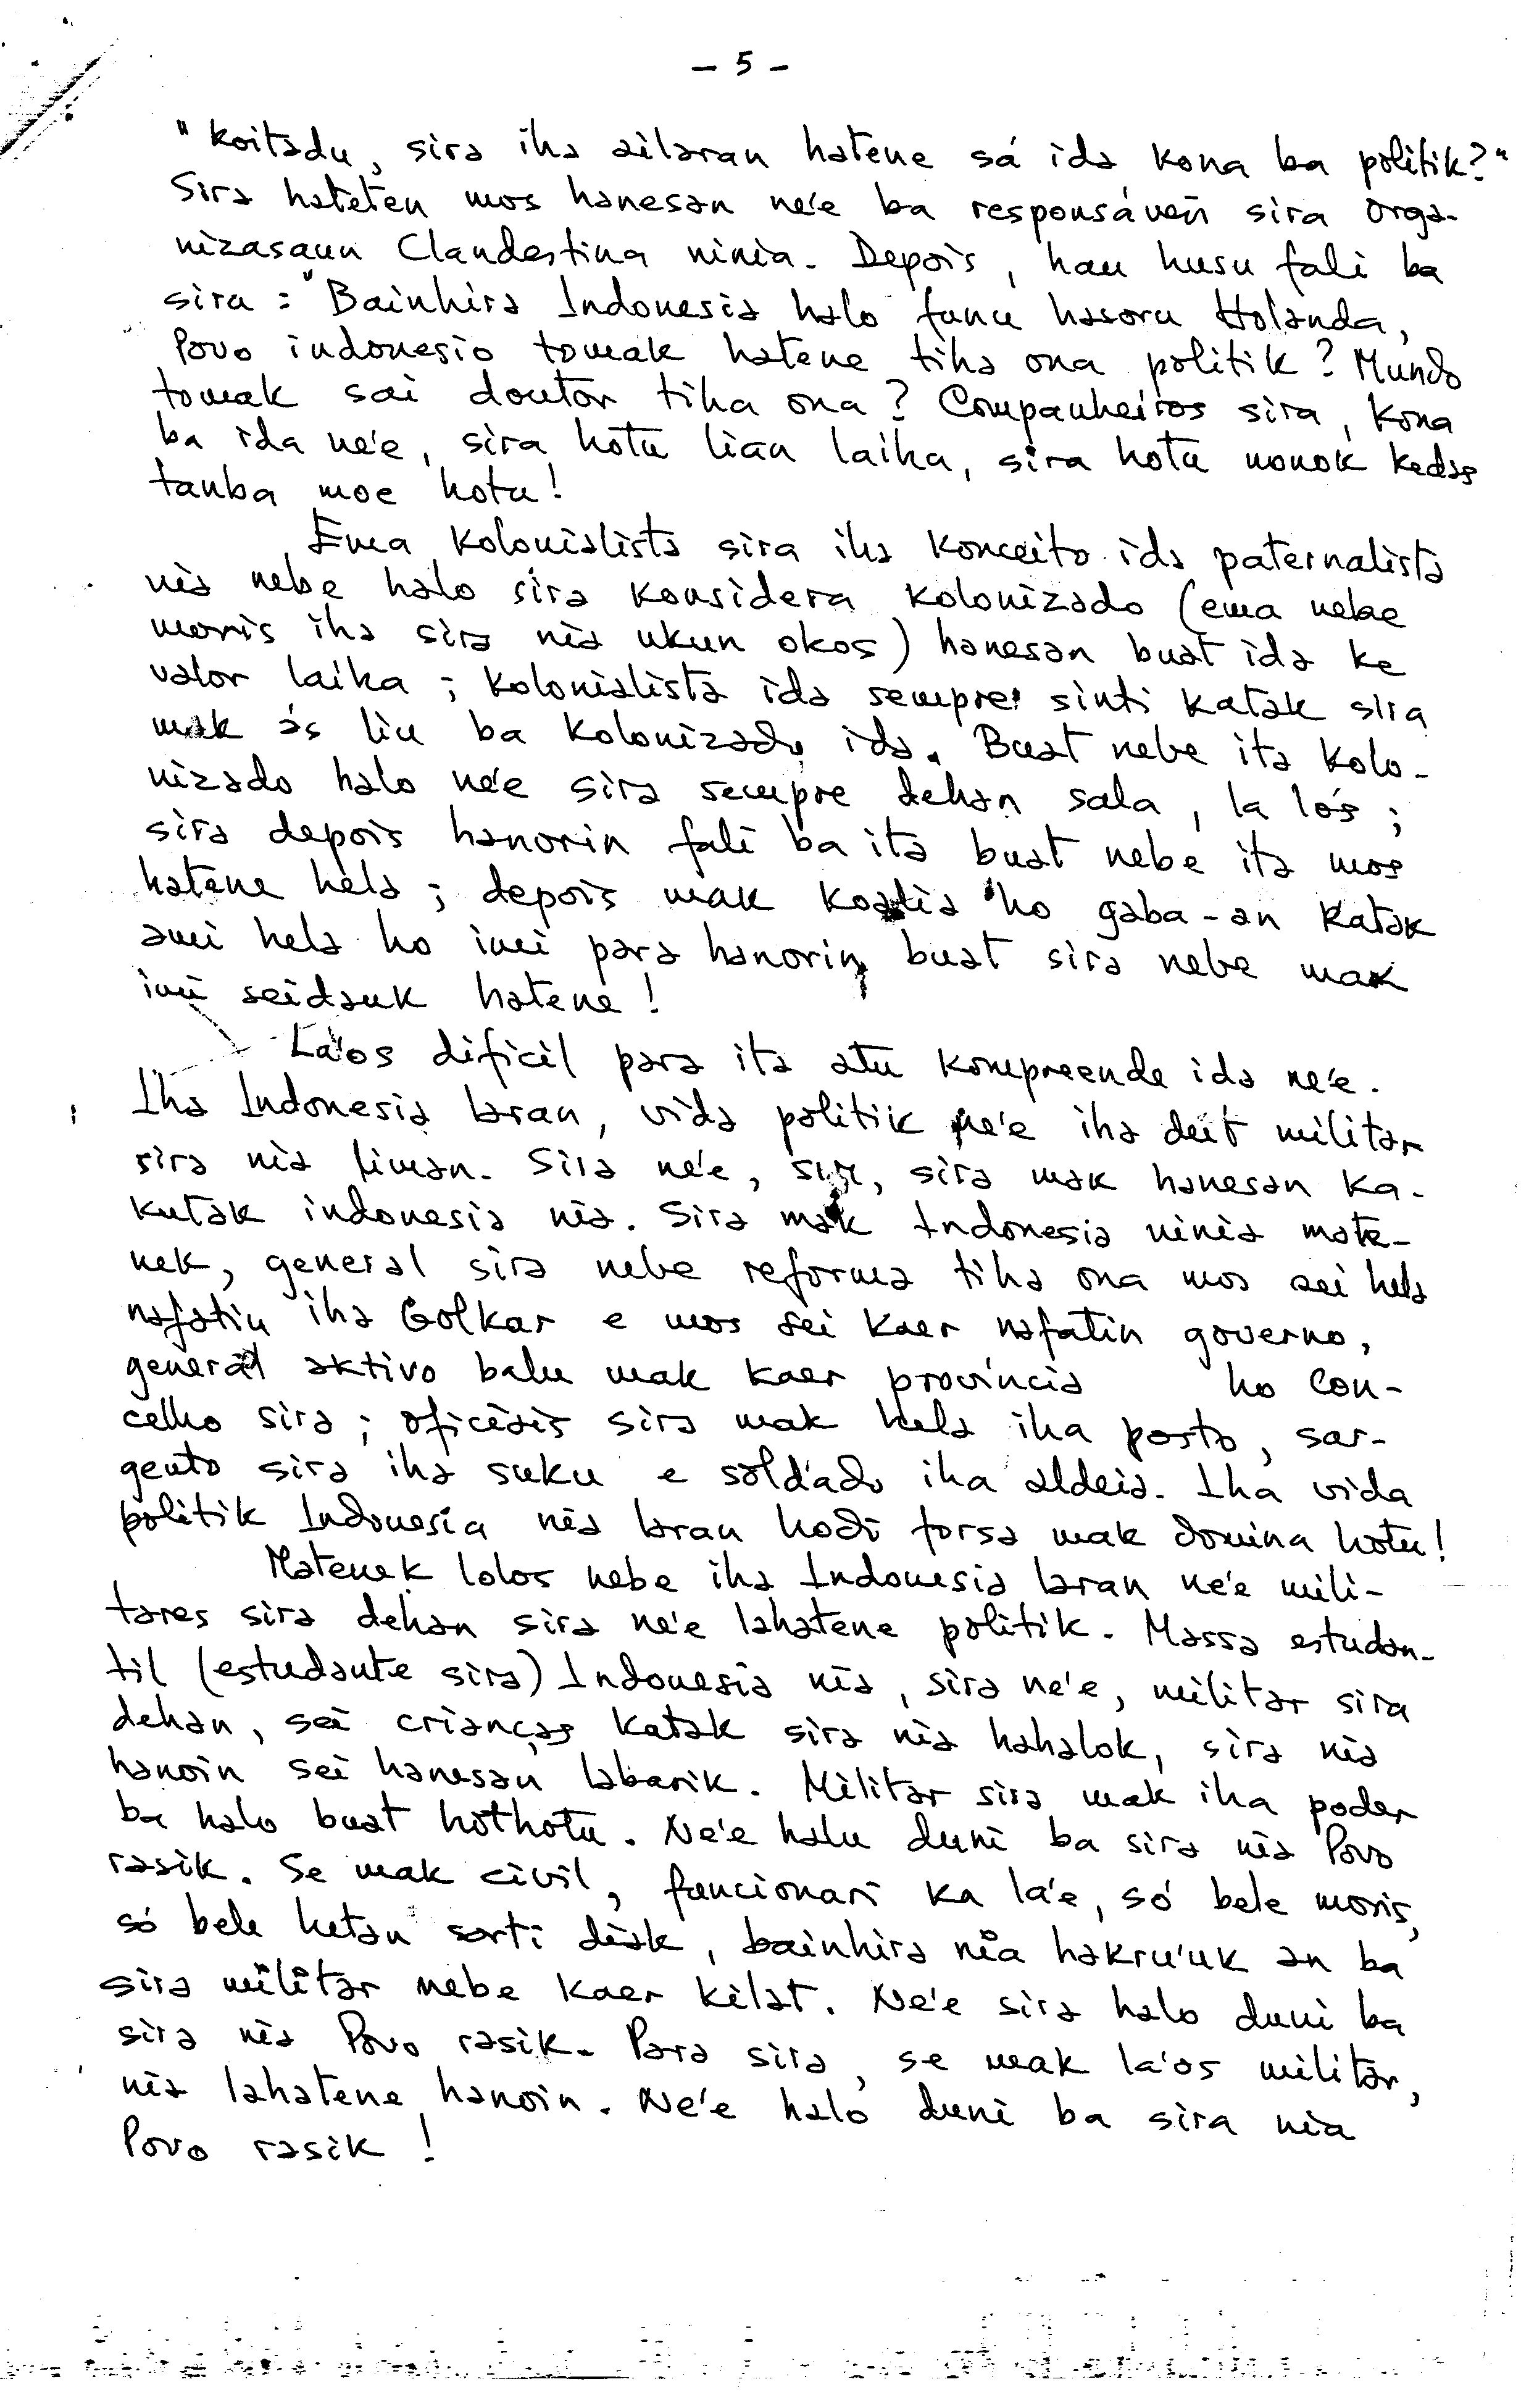 - 5 -
"Koitadu, sira iha ailaran hatene sá ida kona ba politik?"
Sira hateten mos hanesan ne'e ba responsáveñ sira orga-
nizasaun Clandestina ninia. Depois, hau husu fali ba
sira: "Bainhira Indonesia halo funu hasoru Holanda,
Povo indonesio tomak hatene tiha ona politik? Mundo
tomak sai doutor tiha ona? Companheiros sira, kona
ba ida ne'e, sira hotu lian laiha, sira hotu nonok kedas
tanba moe hotu!
Ema kolonialista sira iha konceito ida paternalista
nia nebe halo sira konsidera kolonizado (ema nebe
moris iha sira nia ukun okos) hanesan buat ida ke
valor laiha; kolonialista ida sempre sinti katak sira
mak ás liu ba kolonizadu ida. Buat nebe ita kolo-
nizado halo ne'e sira sempre dehan sala, la lós;
sira depois hanorin fali ba ita buat nebe ita mos
hatene hela; depois mak koalia ho gaba-an katak
ami hela ho imi para hanorin buat sira nebe mak
imi seidauk hatene!
La'os dificil para ita atu kompreende ida ne'e.
Iha Indonesia laran, vida politik ne'e iha deit militar
sira nia liman. Sira ne'e, sim, sira mak hanesan ka-
kutak indonesia nia. Sira mak Indonesia ninia mate-
nek, general sira nebe reforma tiha ona mos sei hela
nafatin iha Golkar e mos sei kaer nafatin governo,
general aktivo balu mak kaer província ho con-
celho sira; oficiais sira mak hela iha posto, sar-
gento sira iha suku e soldado iha aldeia. Iha vida
politik Indonesia nia laran hodi forsa mak domina hotu!
Matenek lolos nebe iha Indonesia laran ne'e mili-
tares sira dehan sira ne'e lahatene politik. Massa estudan-
til (estudante sira) Indonesia nia, sira ne'e, militar sira
dehan, sei crianças katak sira nia hahalok, sira nia
hanoin sei hanesan labarik. Militar sira mak iha poder
ba halo buat hothotu. Ne'e halu duni ba sira nia Povo
rasik. Se mak civil, funcionari ka la'e, só bele moris,
só bele hetan sorti diak, bainhira nia hakru'uk an ba
sira militar nebe kaer kilat. Ne'e sira halo duni ba
sira nia Povo rasik. Para sira, se mak la'os militar,
nia lahatene hanoin. Ne'e halo duni ba sira nia
Povo rasik!